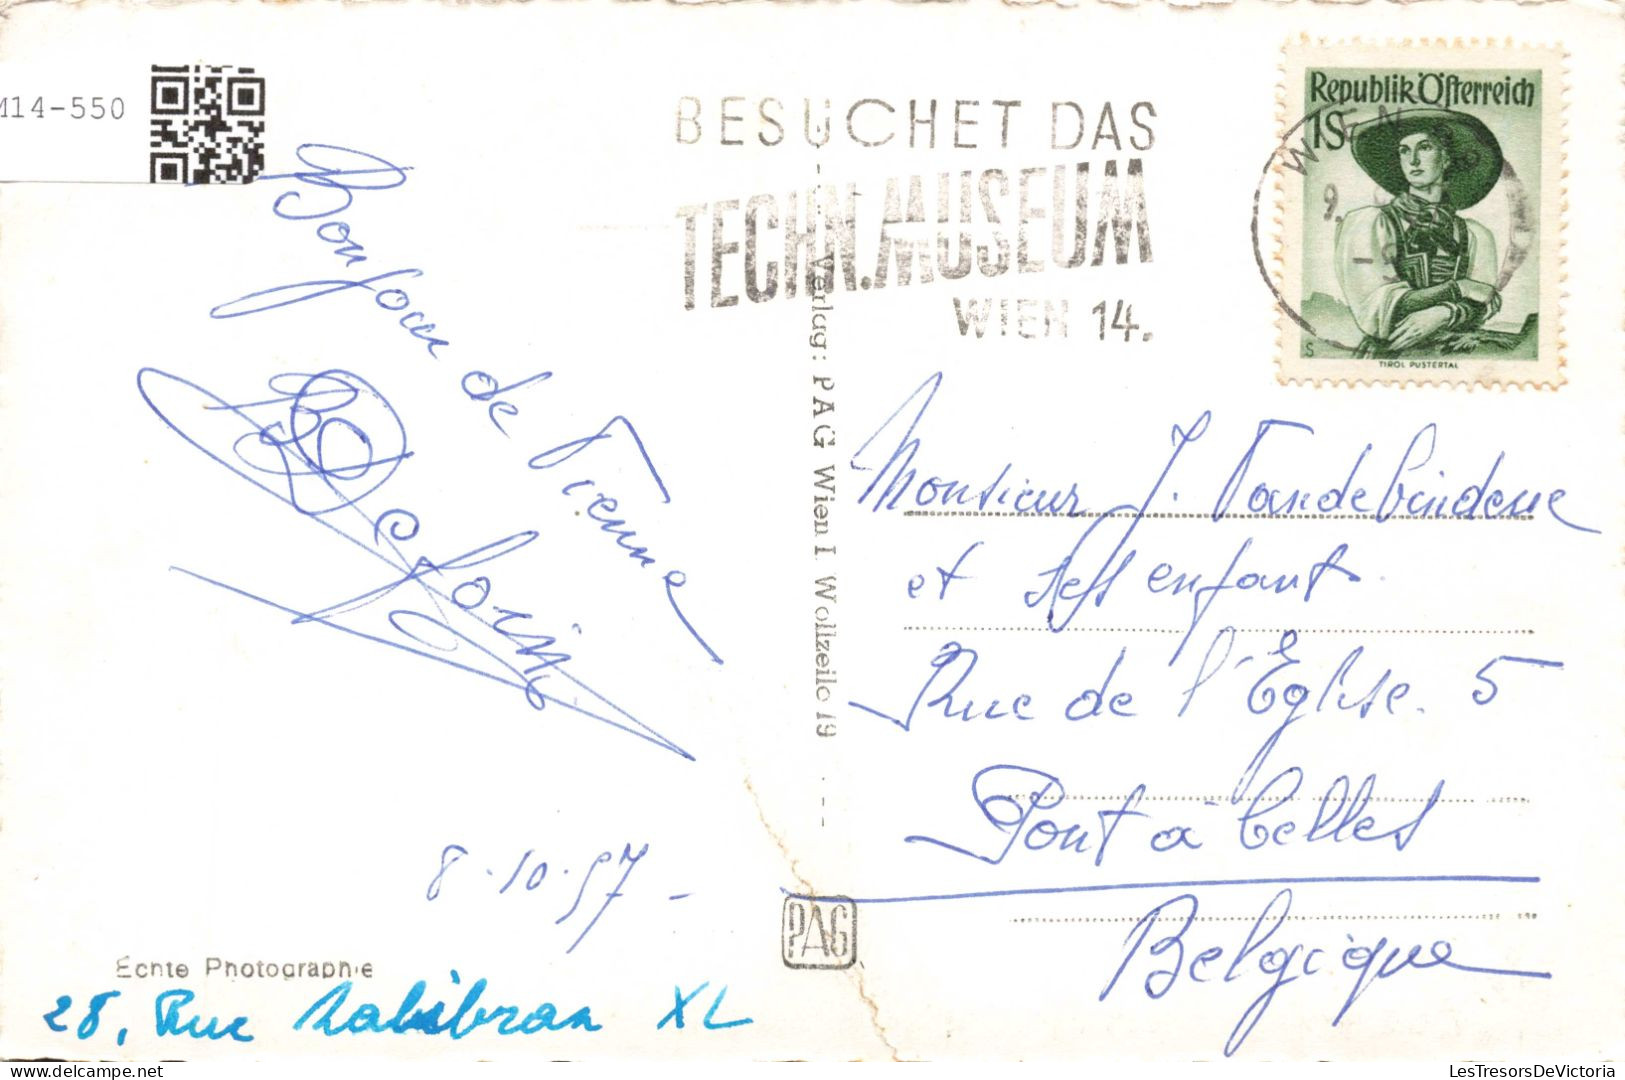 M14-550
BESUCHET DAS
TECHN. MUSEUM
WIEN 14.
Republik Österreich
1S
WIEN
9.
S
TIROL PUSTERTAL
Bonjour de Vienne
8.10.57 -
Echte Photographie
28, Rue Malibran XL
Verlag: PAG Wien I. Wollzeile 19
PAG
Monsieur J. Vandebindene
et enfant
Rue de l'Eglise. 5
Pont à Celles
Belgique
LesTresorsDeVictoria